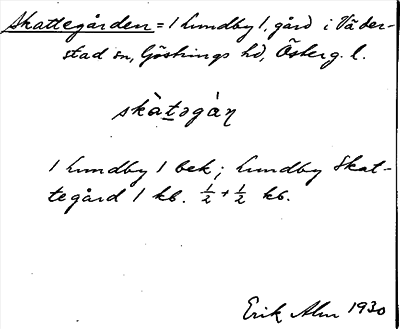 Skattegården = 1 Lundby 1, gård i Väder-
stad sn, Göstrings hd, Österg. l.
skàt̠əgàṇ
1 Lundby 1 bek; Lundby Skat-
tegård 1 kb. ½ + ½ kb.
Erik Alm 1930